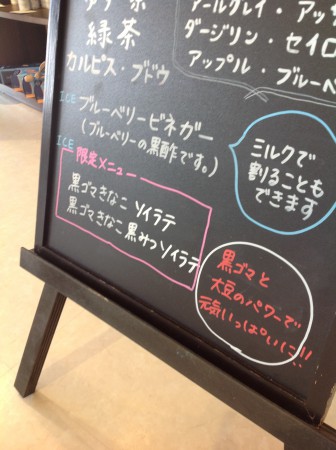 緑茶
カルピス・ブドウ
アールグレイ・アッ
ダージリン・セイロ
アップル・ブルーベ
ICE ブルーベリービネガー
(ブルーベリーの黒酢です。)
ミルクで
割ることも
できます
ICE 限定メニュー
黒ゴマきなこ ソイラテ
黒ゴマきなこ 黒みつソイラテ
黒ゴマと
大豆のパワーで
元気いっぱいに!!